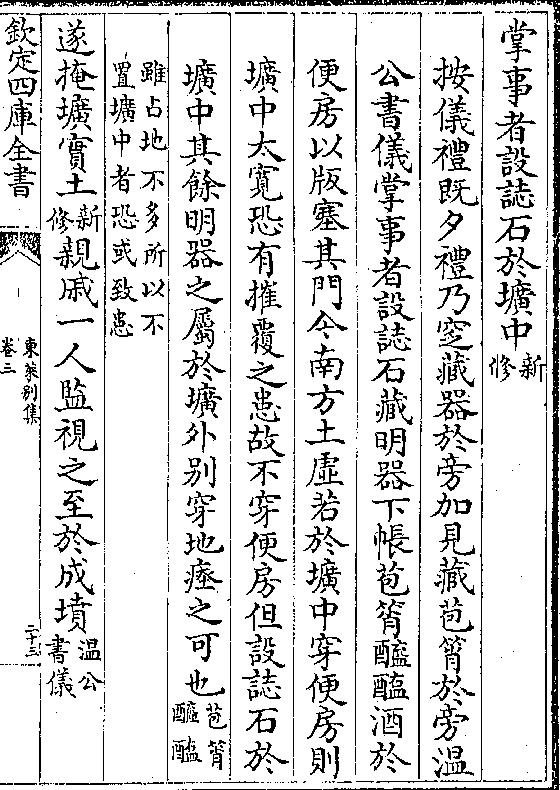 掌事者設誌石於壙中新修
按儀禮既夕禮乃窆藏器於旁加見藏苞筲於旁溫
公書儀掌事者設誌石藏明器下帳苞筲醯醢酒於
便房以版塞其門今南方土虛若於壙中穿便房則
壙中太寛恐有摧覆之患故不穿便房但設誌石於
壙中其餘明器之屬於壙外别穿地瘞之可也苞筲醯醢
雖占地不多所以不
置壙中者恐或致患
遂掩壙實土新修親戚一人監視之至於成墳溫公書儀
欽定四庫全書
東萊别集
卷三
二十三